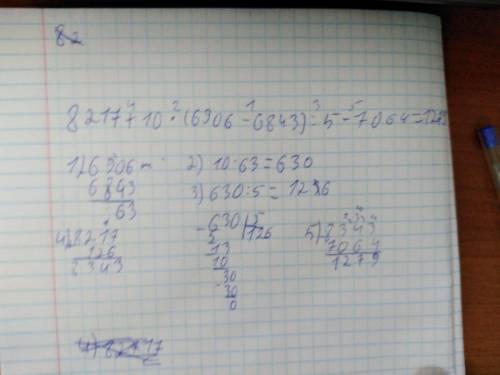 82
8217+10·(6906-6843):5-7064=1279
1) 6906
6843
63
2) 10·63=630
3) 630:5=126
630 5
5 126
13
10
30
30
0
4) 8217
126
8343
5) 8343
7064
1279
4) 8217